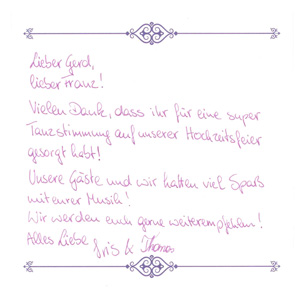 Lieber Gerd,
lieber Franz!
Vielen Dank, dass ihr für eine super
Tanzstimmung auf unserer Hochzeitsfeier
gesorgt habt!
Unsere Gäste und wir hatten viel Spaß
mit eurer Musik!
Wir werden euch gerne weiterempfehlen!
Alles Liebe Iris & Thomas